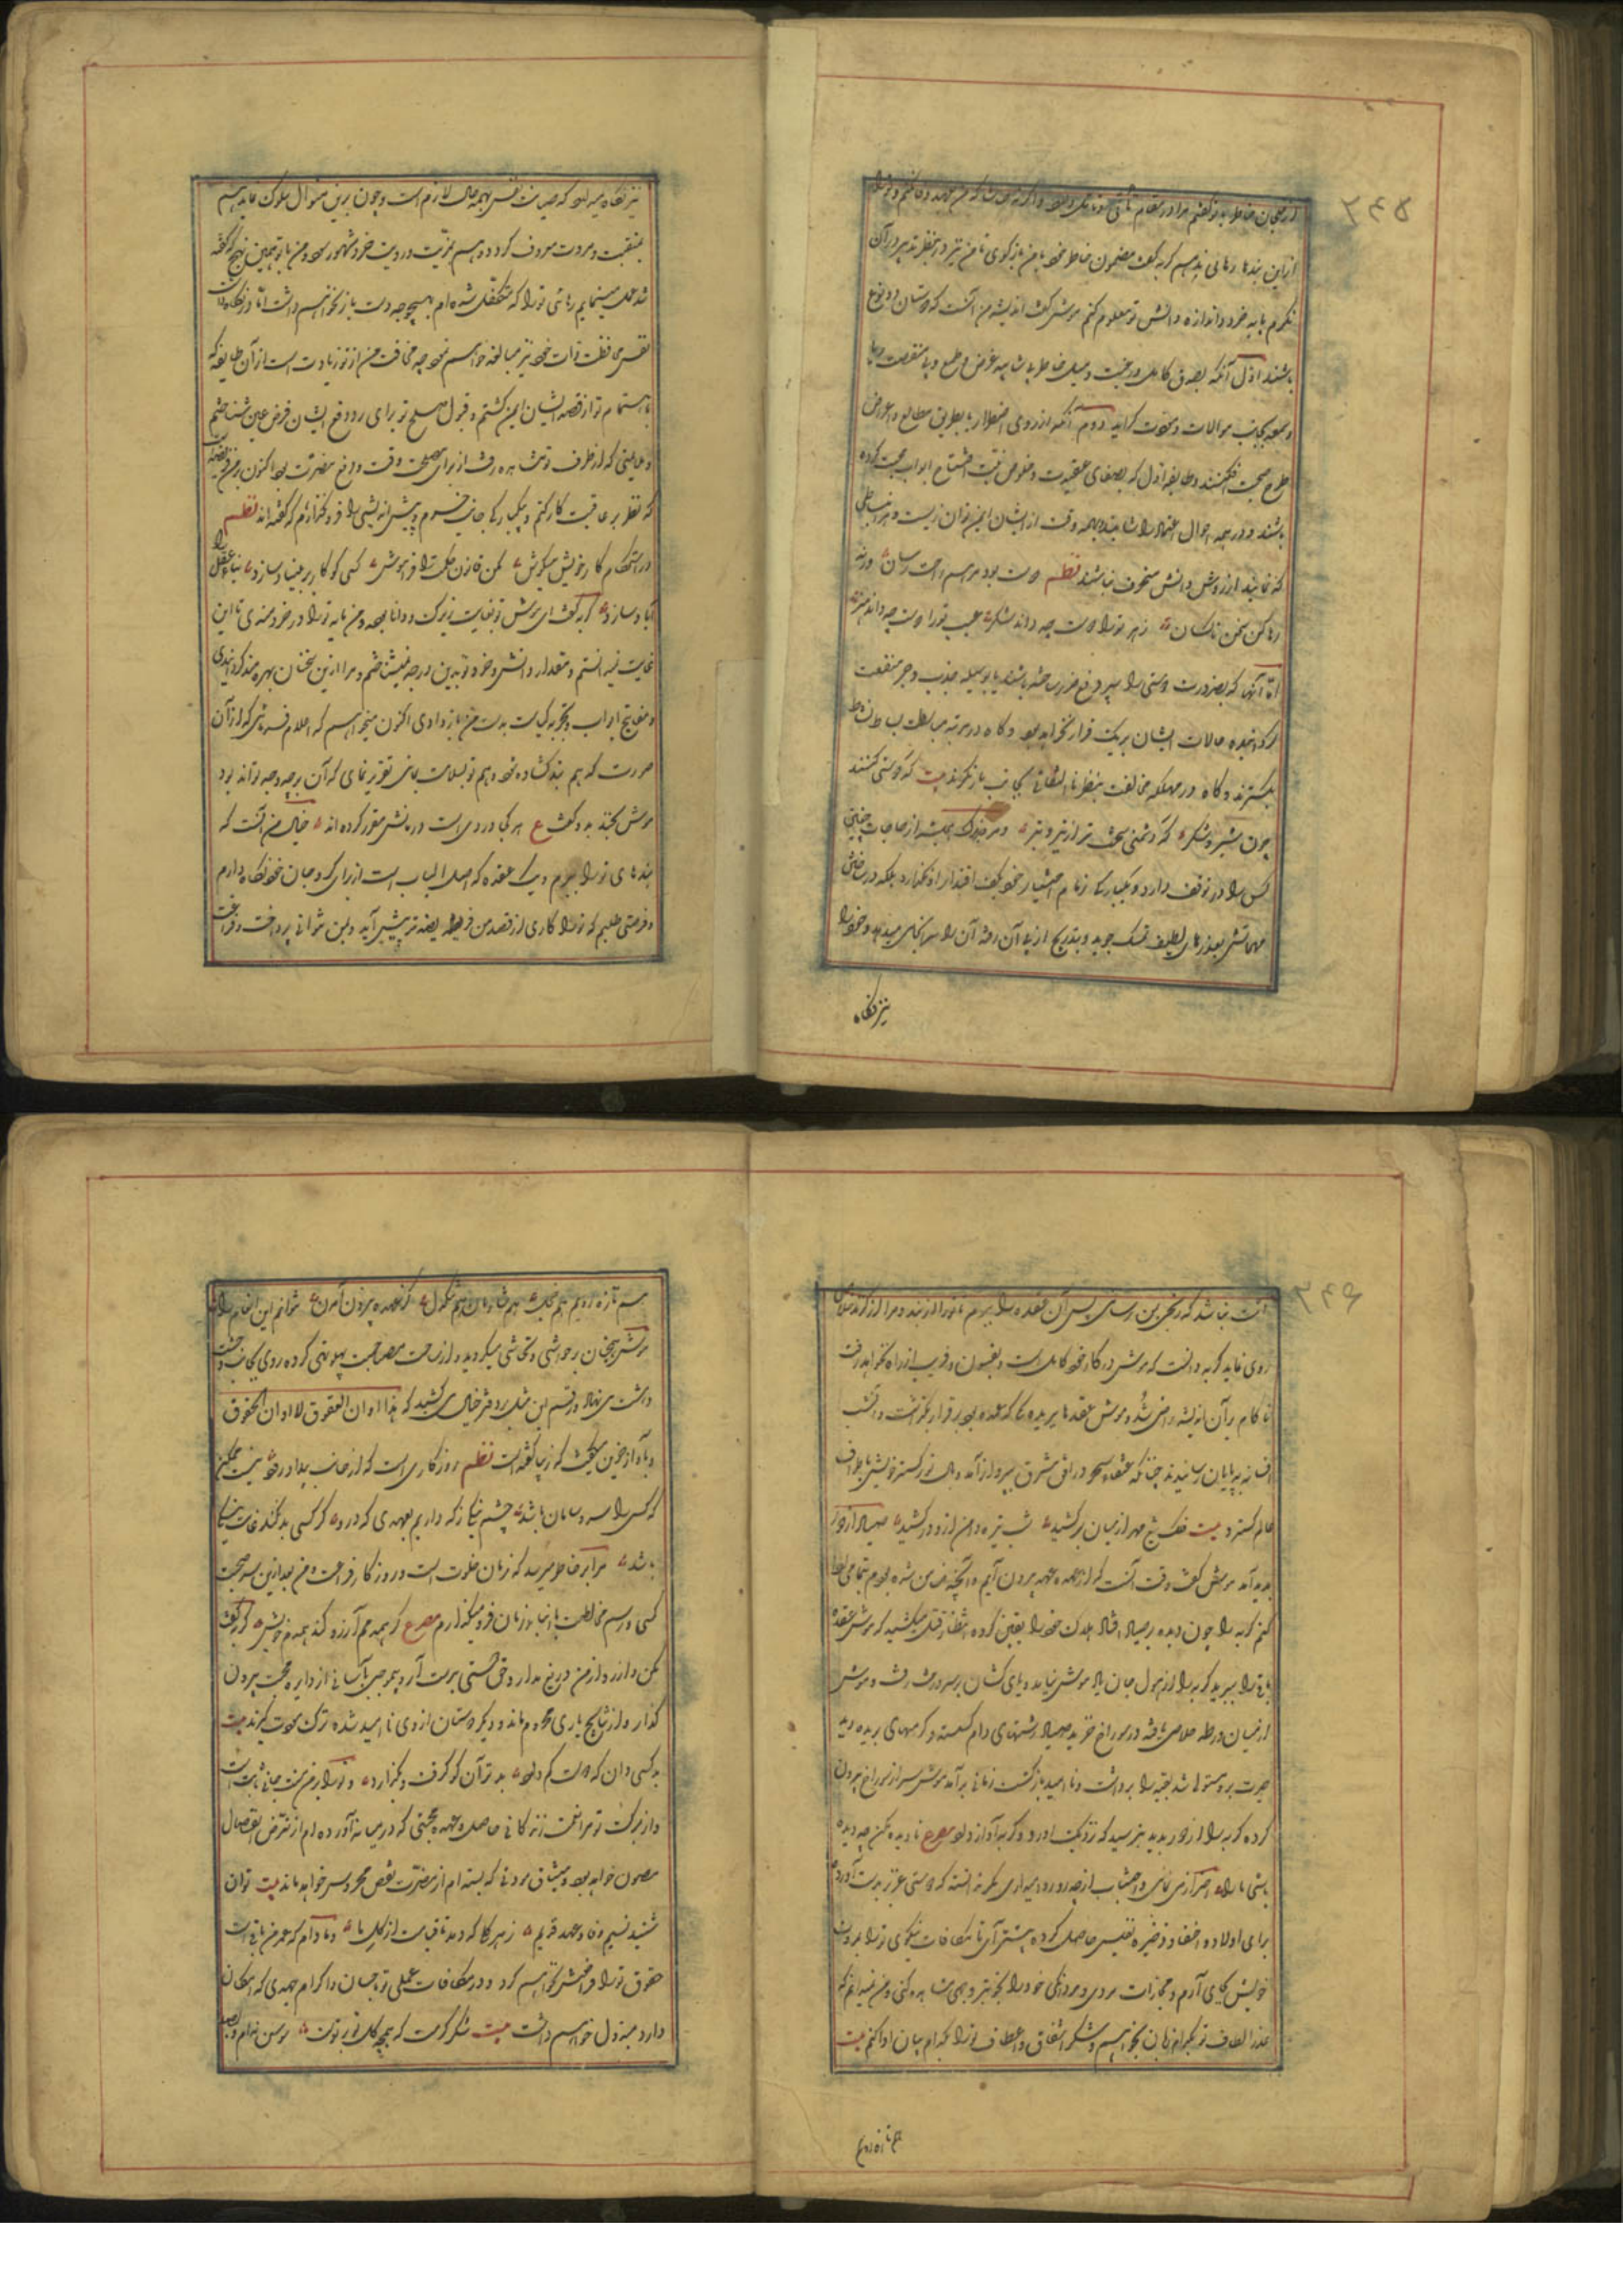 ۲۴۵
از این بندها رهائی یابم گربه گفت مضمون خاطر خود با من بازگوی تا من نیز در آن نظر تدبیر
نگرم پایه خرد و اندازه دانش تو معلوم کنم موش گفت اندیشه من آنست که دوستان دو نوع
باشند اول آنکه بصدق کامل و رغبت و میل خاطر بی شایبه غرض و طمع و بی منقصت ریا
و سمعه بجانب موالات و مخوت گرایند دوم آنکه از روی اضطرار یا بطریق مطامع و اغراض
طرح صحبت افکنند و طایفه اول که بصفای عقیدت و خلوص نیت افتتاح ابواب محبت کرده
باشند در همه احوال اعتماد را شایند و بهمه وقت از ایشان ایمن توان زیست و هر انبساطی
که نمایند از روش دانش منحرف نباشند نظم دوست بود مرهم راحت رسان ورنه
رها کن سخن ناکسان زهر ترا دوست چه داند شکر عیب ترا دوست چه داند هنر
اما آنها که بضرورت دوستی را سپر دفع ضرر ساخته باشند یا بوسیله جذب و جر منفعت
گردانیده حالات ایشان بریک قرار نخواهد بود گاه در مرتبه مباسطت بساط نشاط
بگسترند و گاه در مهلکه مخالفت بنظر نا التفاتی بجانب باز نگرند بیت گه دوستی کنند
چون شیر و شکر گه دشمنی سخت تر از تیر و تبر و مرد زیرک همیشه از حاجات چنین
کس را در توقف دارد و یکبارگی زمام اختیار خود بکف اقتدار او نگذارد بلکه در ساختن
مهماتش بعذرهای لطیف تمسک جوید و بتدریج از پی آن رفته آن را سرانجامی میدهد و خود را
نیز نگاه
نیز نگاه میدارد که صیانت نفس بهمه حال لازم است و چون برین منوال سلوک نماید هم
بمنقبت و مروت معروف گردد و هم بمزیت رویت خرد مشهور شود و من با تو بهمین نهج که گفته
شد عمل مینمایم رهائی ترا که متکفل شده ام بهیچ وجه دست باز نخواهم داشت اما در نگاه داشت
نفس و محافظت ذات خود نیز مبالغه خواهم نمود چه مخافت من از تو زیادت است از آن طایفه که
باهتمام تو از قصد ایشان ایمن گشتم و قبول صلح تو برای رد و دفع ایشان فرض عین شناختم
و ملایمتی که از طرف تو مشاهده رفت از برای مصلحت وقت و دفع مضرت بود اکنون بر من فریضه
که نظر بر عاقبت کار کنم و یکبارگی جانب حزم و پیش اندیشی را فرو نگذارم که گفته اند نظم
در استحکام کار خویش میکوش مکن قانون حکمت را فراموش کسی کو کار بر بنیاد سازد بنای عقل را
آباد سازد گربه گفت ای موش تو بغایت زیرک و دانا بوده و من پایه ترا در خردمندی تا این
غایت نمیدانستم و مقدار دانش و خرد تو بدین درجه نمیشناختم و مرا ازین سخنان بهره مند گردانیدی
و مفاتیح ابواب تجربه و کیاست بدست من باز دادی اکنون میخواهم که اعلام فرمائی که از آن
صورت که هم بند گشاده شود و هم تو بسلامت مانی تقریر نمای که آن بر چه وجه تواند بود
موش بخندید و گفت ع هر کجا دردی است درمانش مقرر کرده اند خیال من آنست که
بندهای ترا ببرم و یک عقده که اصل الباب است از برای گرو جان خود نگاه دارم
و فرصتی طلبم که ترا کاری از قصد من فریضه تر پیش آید و بمن نتوانی پرداخت و فراغت
۲۴۶
آنت نباشد که رنجی بمن رسانی پس آن عقده را ببرم تا ترا از بند و مرا از گزند خلاصی
روی نماید گربه دانست که موش در کار خود کامل است و بفسون و فریب از راه نخواهد رفت
ناکام بر آن اندیشه راضی شد و موش عقدها بریده یکی که عمده بود برقرار بگذاشت و آن شب
افسانه بپایان رسانیدند چندانکه عنقاء سحر در افق مشرق بپرواز آمد و بال نور گستر خویش باطراف
عالم گسترد بیت فلک تیغ مهر از میان برکشید شب تیره دامن ازو درکشید صیاد از دور
پدید آمد موش گفت وقت آنست که از عهده عهد بیرون آیم و آنچه ضمان من شده بودم بتمامی ادا
کنم گربه را چون دیده بر صیاد افتاد هلاک خود را یقین کرده انتظار قتل میکشید که موش عقده
باقی را ببرید گربه را از هول جان یاد موش نیامد و پای کشان بر سر درخت رفت و موش
از میان ورطه خلاص یافته در سوراخ خزید صیاد رشتهای دام گسسته و گرههای بریده دید
حیرت برو مستولی شد بقیه را برداشت و نا امید بازگشت زمانی برآمد موش سر از سوراخ بیرون
کرده گربه را از دور بدید بترسید که نزدیک او رود گربه آواز داد مصرع نادیده مکن چو دیده
باشی ما را احتراز می نمائی و اجتناب از چه رو روا میداری مگر ندانسته که دوستی عزیز بدست آورده
برای اولاد و احفاد ذخیره نفیس حاصل کرده پیشتر آی تا مکافات نیکوی ترا بمروت
خویش بجای آرم و مجازات مردی و مردانگی خود را بخوبتر وجهی مشاهده کنی و من نمیدانم که
عذر الطاف تو بکدام زبان بخواهم و شکر اشفاق و اعطاف ترا بکدام بیان ادا کنم بیت
هم تازه رویم
هم تازه رویم هم خجل هم شادمان هم تنگدل کز عهده بیرون آمدن نتوانم این انعام را
موش همچنان بر حواشی تحاشی میگردید و از ساحت مصاحبت پهلو تهی کرده روی بجانب وحشت
داشت می نهاد و رقم این مثل بر دفتر خیال می کشید که هذا اوان العقوق لا اوان الحقوق
و بآواز حزین میگفت که زیبا گفته است نظم روزگاری است که از غایت بیداد درو نیست ممکن
که کسی را سر و سامان باشد چشم نیکی ز که داریم بعهدی که درو گر کسی بد نکند غایت نیکی
باشد مرا بر خاطر میرسد که زمان خلوت است و روزگار فراغت و من بعد ازین سر صحبت
کسی و رسم مخالطت با ابناء زمان فرو میگذارم مصرع گر همدمم آرزو کند همدم خویش گربه گفت
مکن و دیدار از من دریغ مدار و حق دوستی بر دست آر و هر که بآسانی از دایره محبت بیرون
گذارد از نتایج یاری محروم ماند و دیگر دوستان ازوی نا امید شده ترک مودت گیرند بیت
بد کسی دان که دوست کم دارد بدتر آن کو گرفت و بگذارد و ترا بر من منت جانی ثابت است
و از برکت تو مرا نعمت زندگانی حاصل و عهد محبتی که در میانه آورده ام از تعرض انفصال
مصون خواهد بود و میثاق مودتی که بسته ام از مضرت نقض محروس خواهد ماند بیت توان
شنید نسیم وفا و عهد قدیم زهر گیا که دمد تا قیامت از گل ما و مادام که عمر من باقی است
حقوق ترا فراموش نخواهم کرد و در مکافات عملی تو باحسان و اکرام جهدی که امکان
دارد مبذول خواهم داشت بیت شکر کرمت که همچو گل تو بر توست